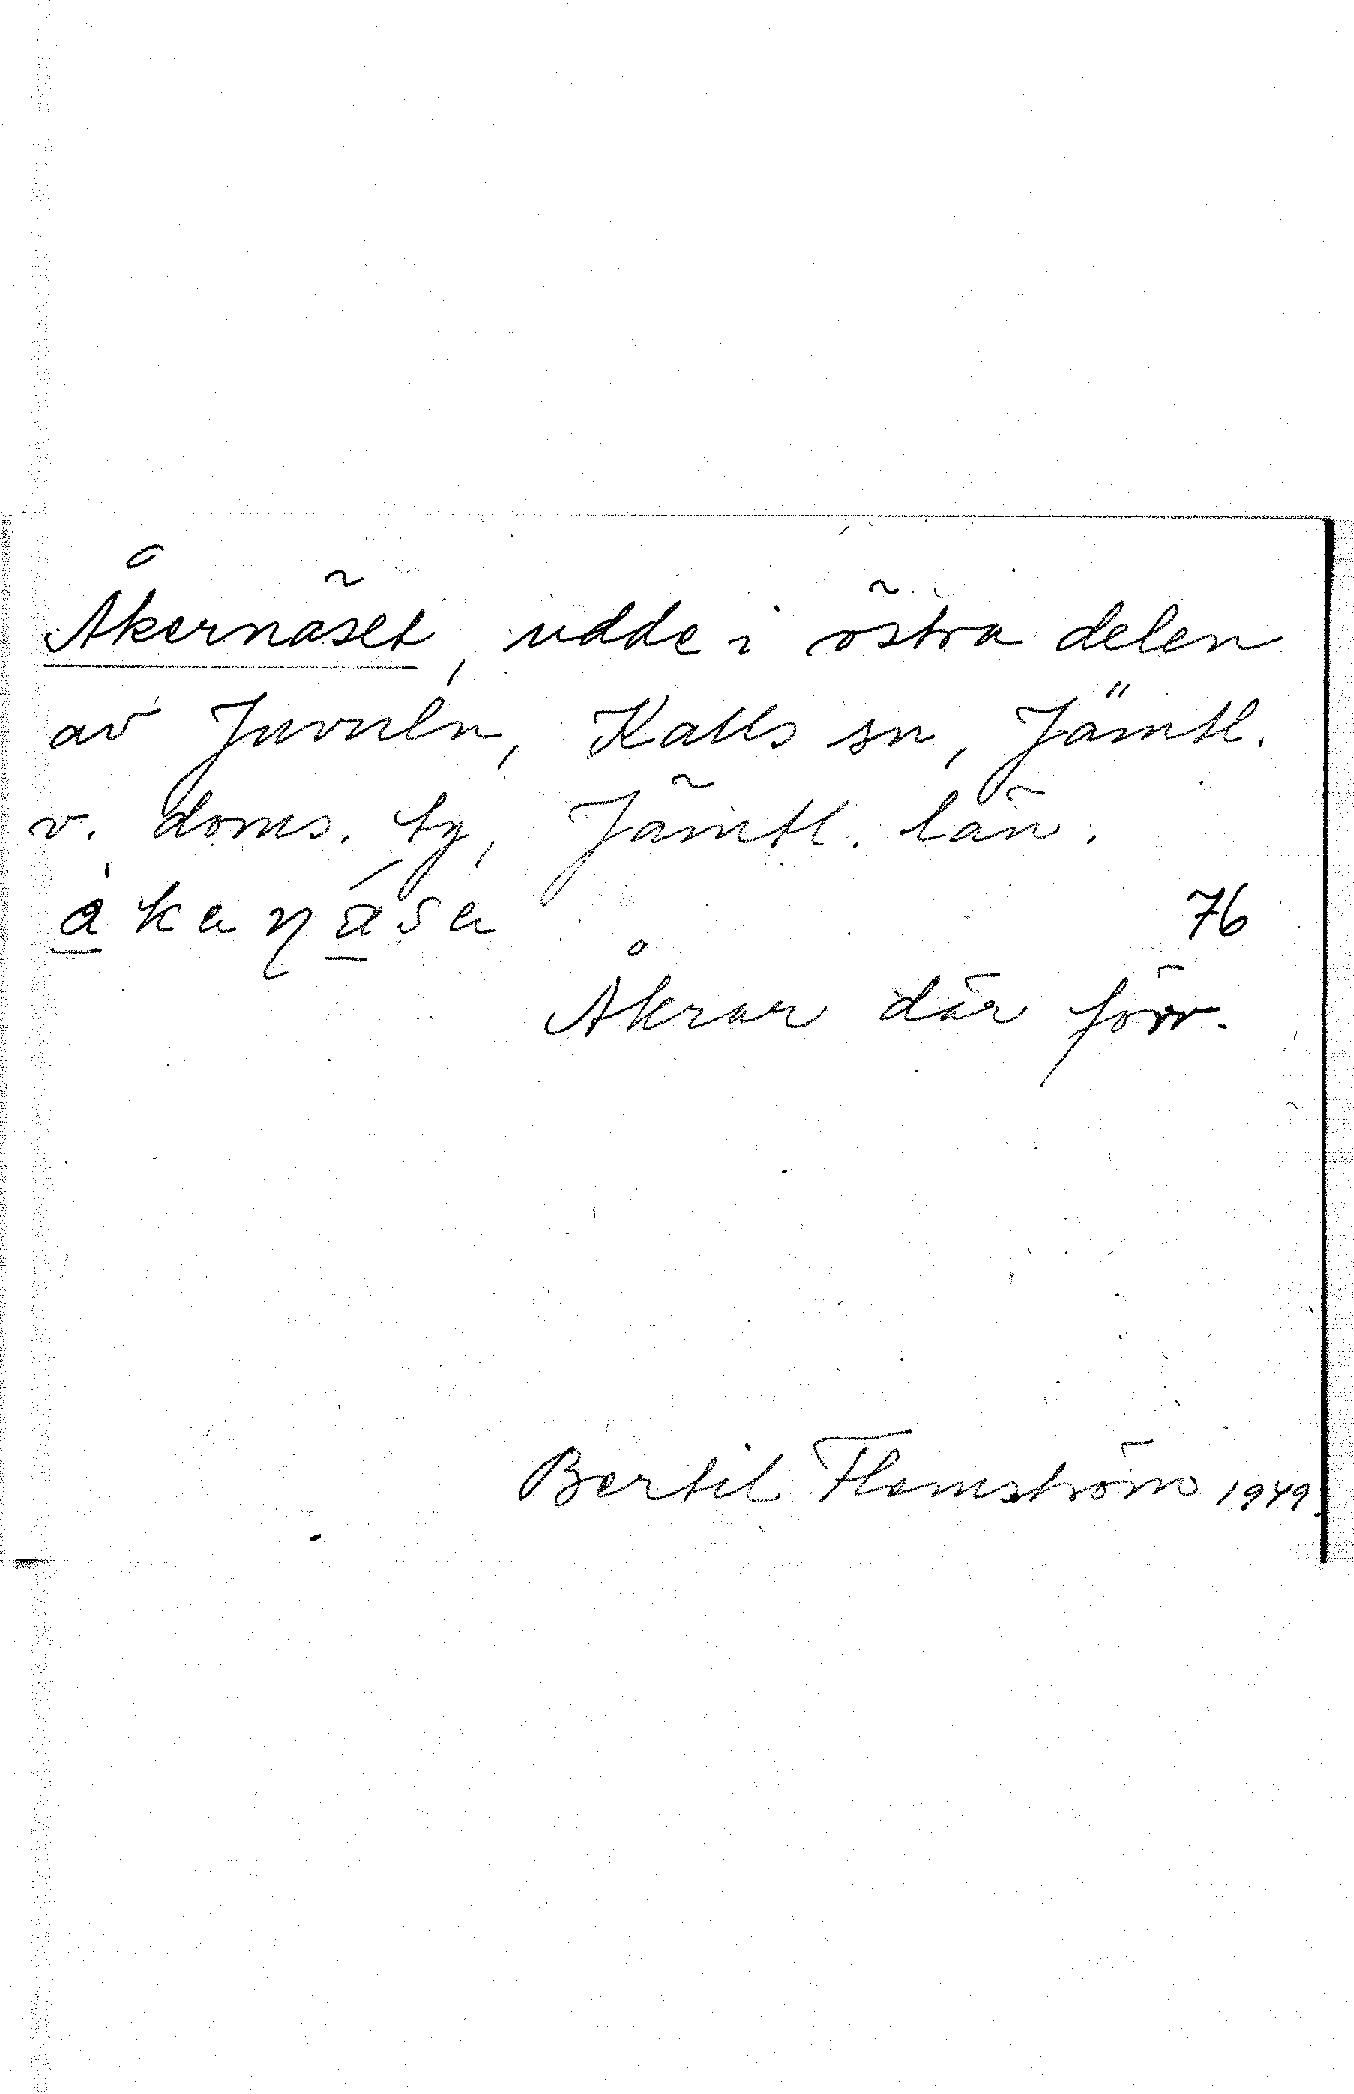 Åkernäset, udde i östra delen
av Juvuln, Kalls sn, Jämtl.
v. doms. tg, Jämtl. län.
åkaṇä́sa
76
Åkrar där förr.
Bertil Flemström 1949.